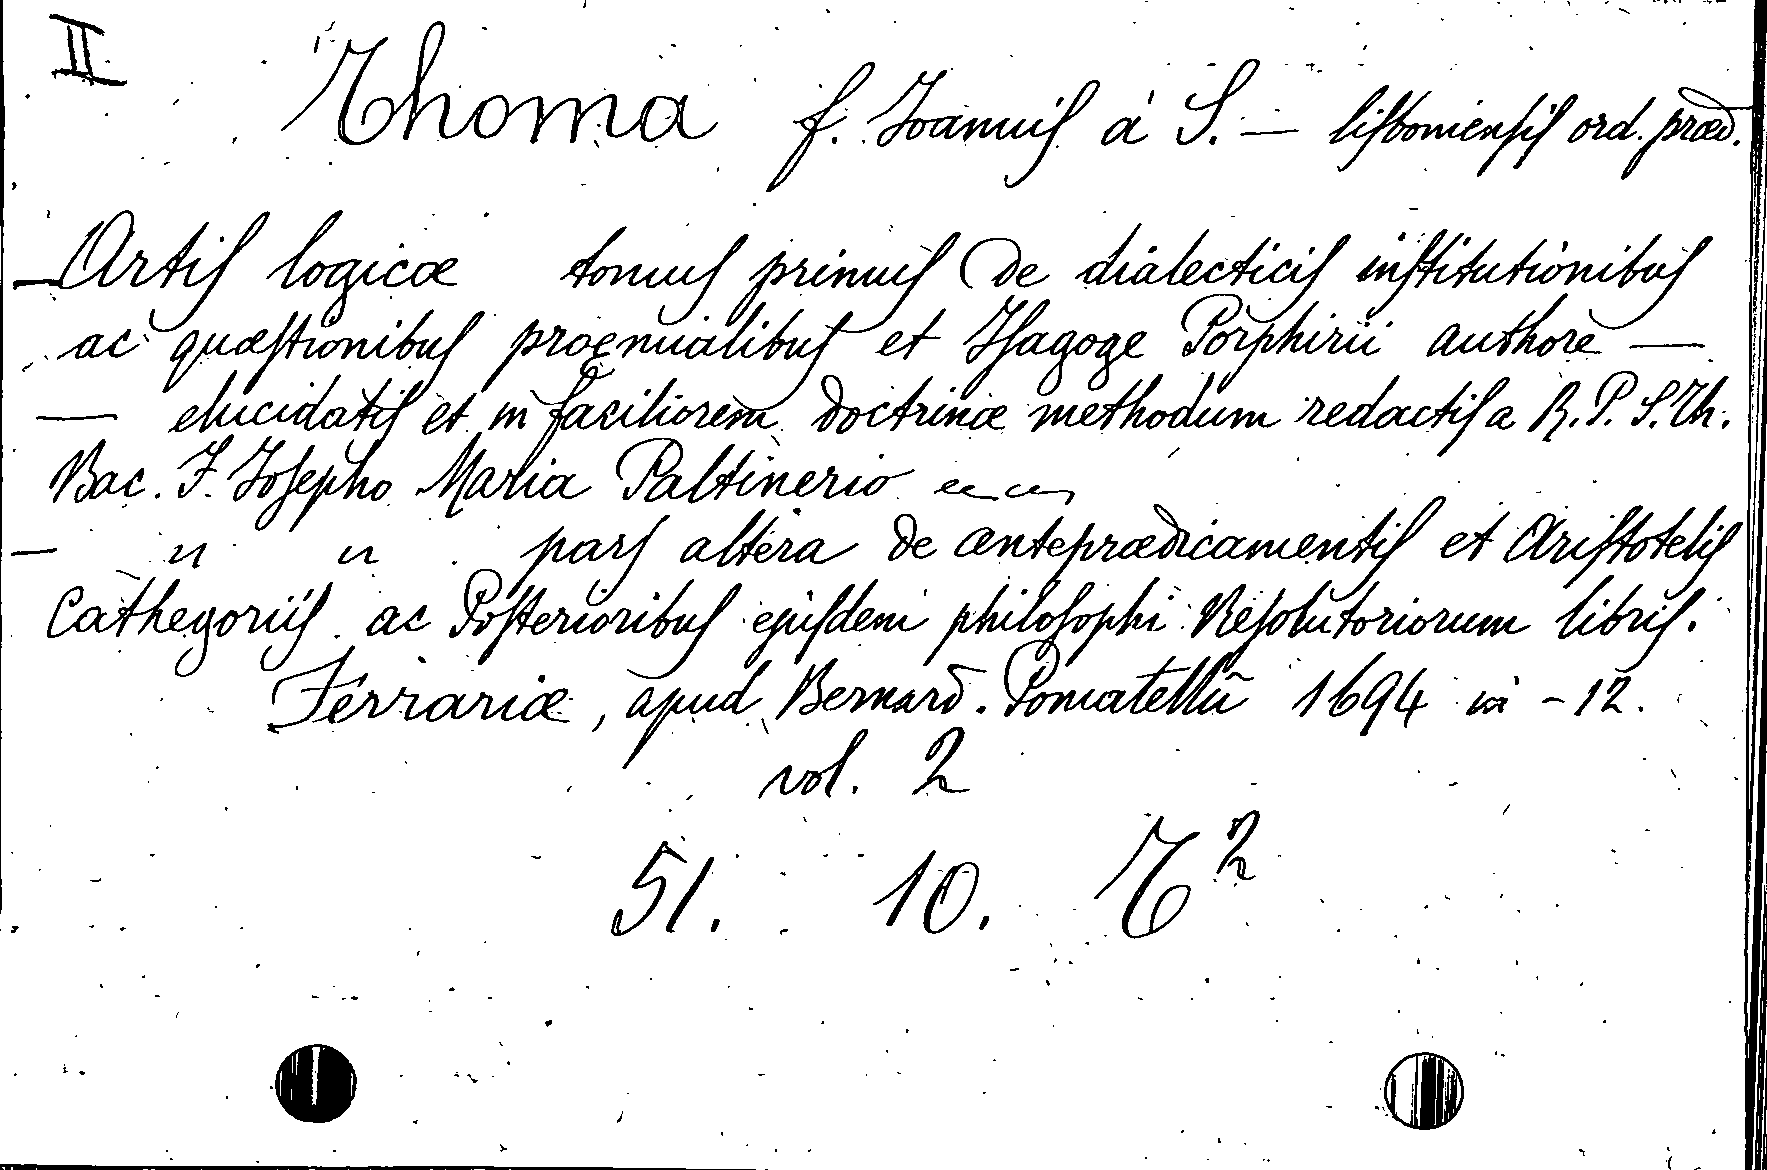 II
Thoma f. Joannis à S. — lisboniensis ord. præd.
— Artis logicæ tomus primus de dialecticis institutionibus
ac quæstionibus proemialibus et Isagoge Porphirii authore —
— elucidatis et in faciliorem doctrinæ methodum redactis a R. P. S. Th.
Bac. F. Josepho Maria Paltinerio
— " " pars altera de antepræedicamentis et Aristotelis
Cathegoriis ac Posterioribus ejusdem philosophi Resolutoriorum libris.
Ferrariæ, apud Bernard. Pomatellū 1694 in -12.
vol. 2
51. 10. T²